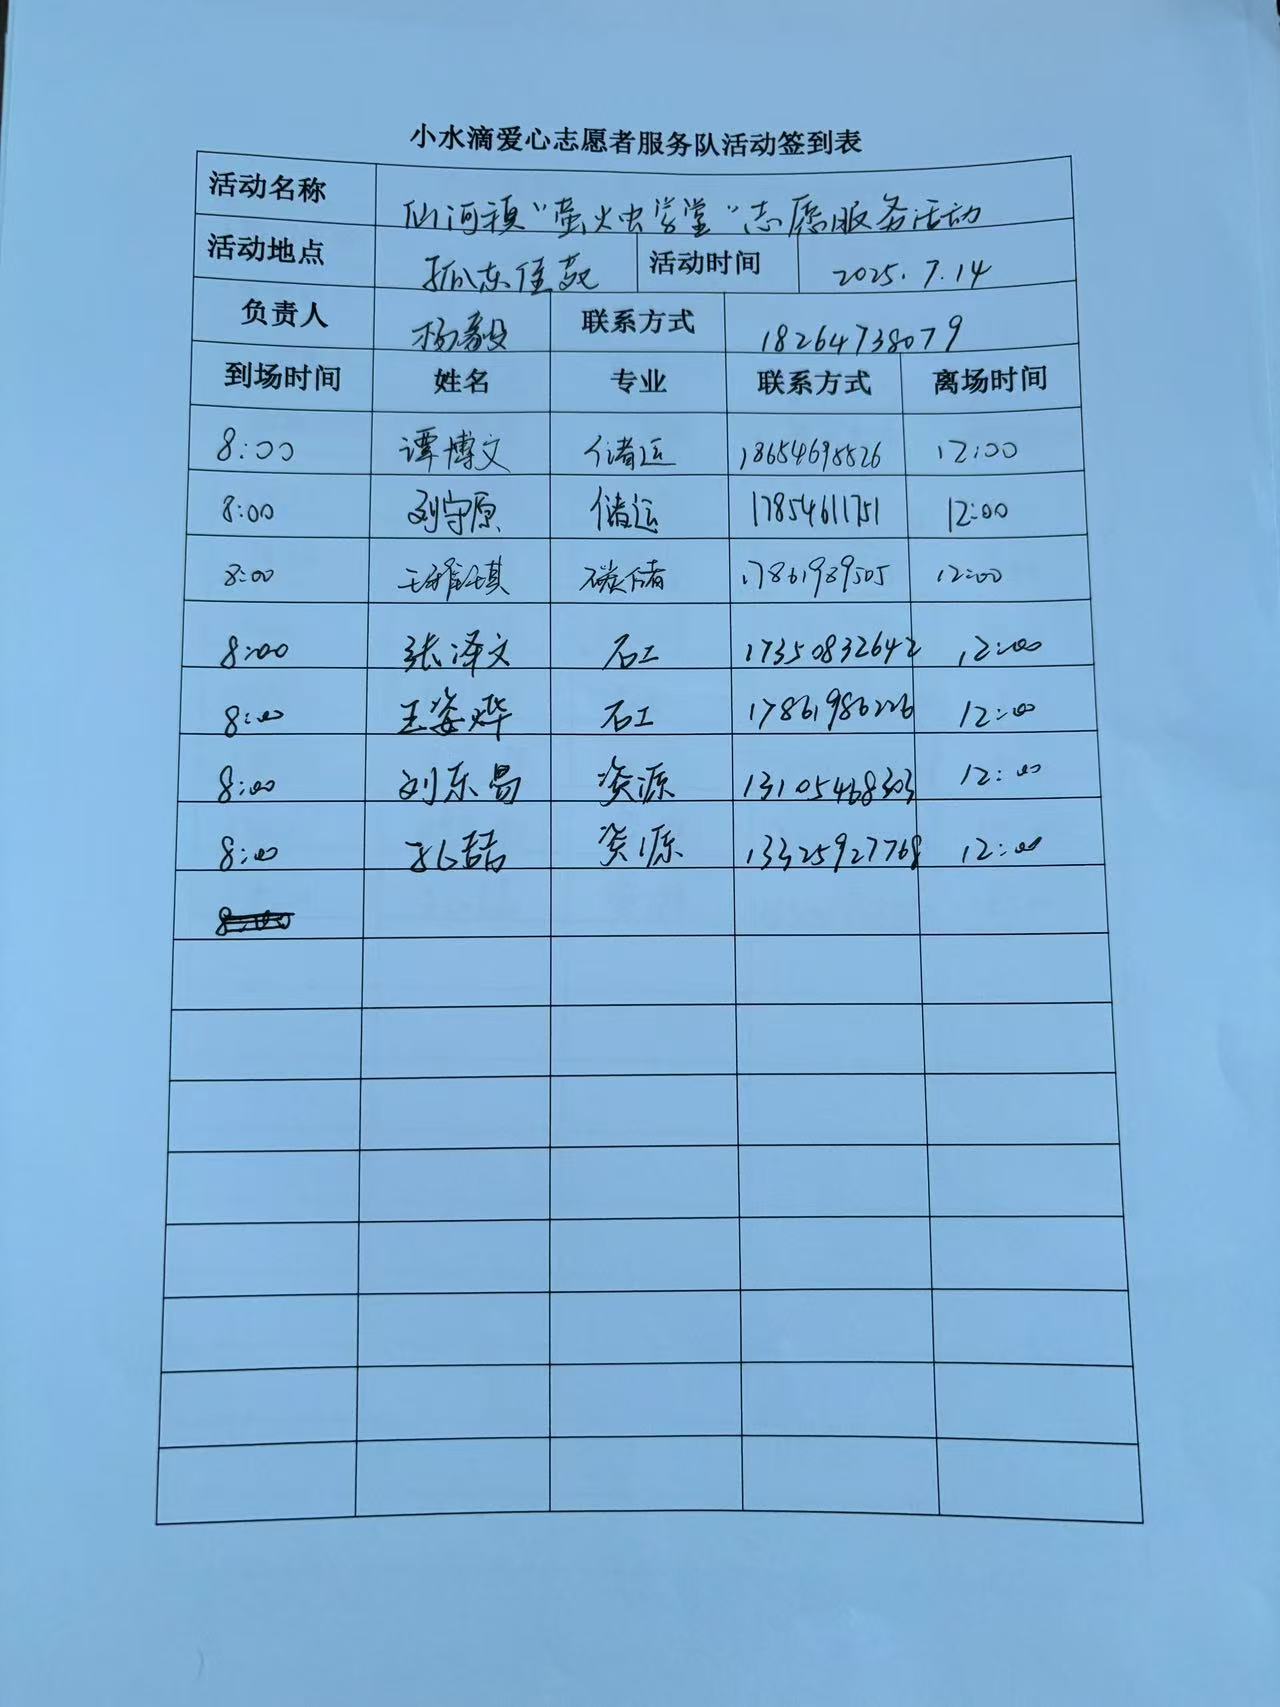 小水滴爱心志愿者服务队活动签到表
活动名称 仙河镇“萤火虫学堂”志愿服务活动
活动地点 孤东佳苑 活动时间 2025.7.14
负责人 杨毅 联系方式 18264738079
到场时间 姓名 专业 联系方式 离场时间
8:00 谭博文 储运 18654698826 12:00
8:00 刘守原 储运 17854611751 12:00
8:00 王雅琪 碳储 17861989505 12:00
8:00 张泽文 石工 17350832642 12:00
8:00 王姿烨 石工 17861986226 12:00
8:00 刘东昌 资源 13105468303 12:00
8:00 孔喆 资源 13325927768 12:00
8:00